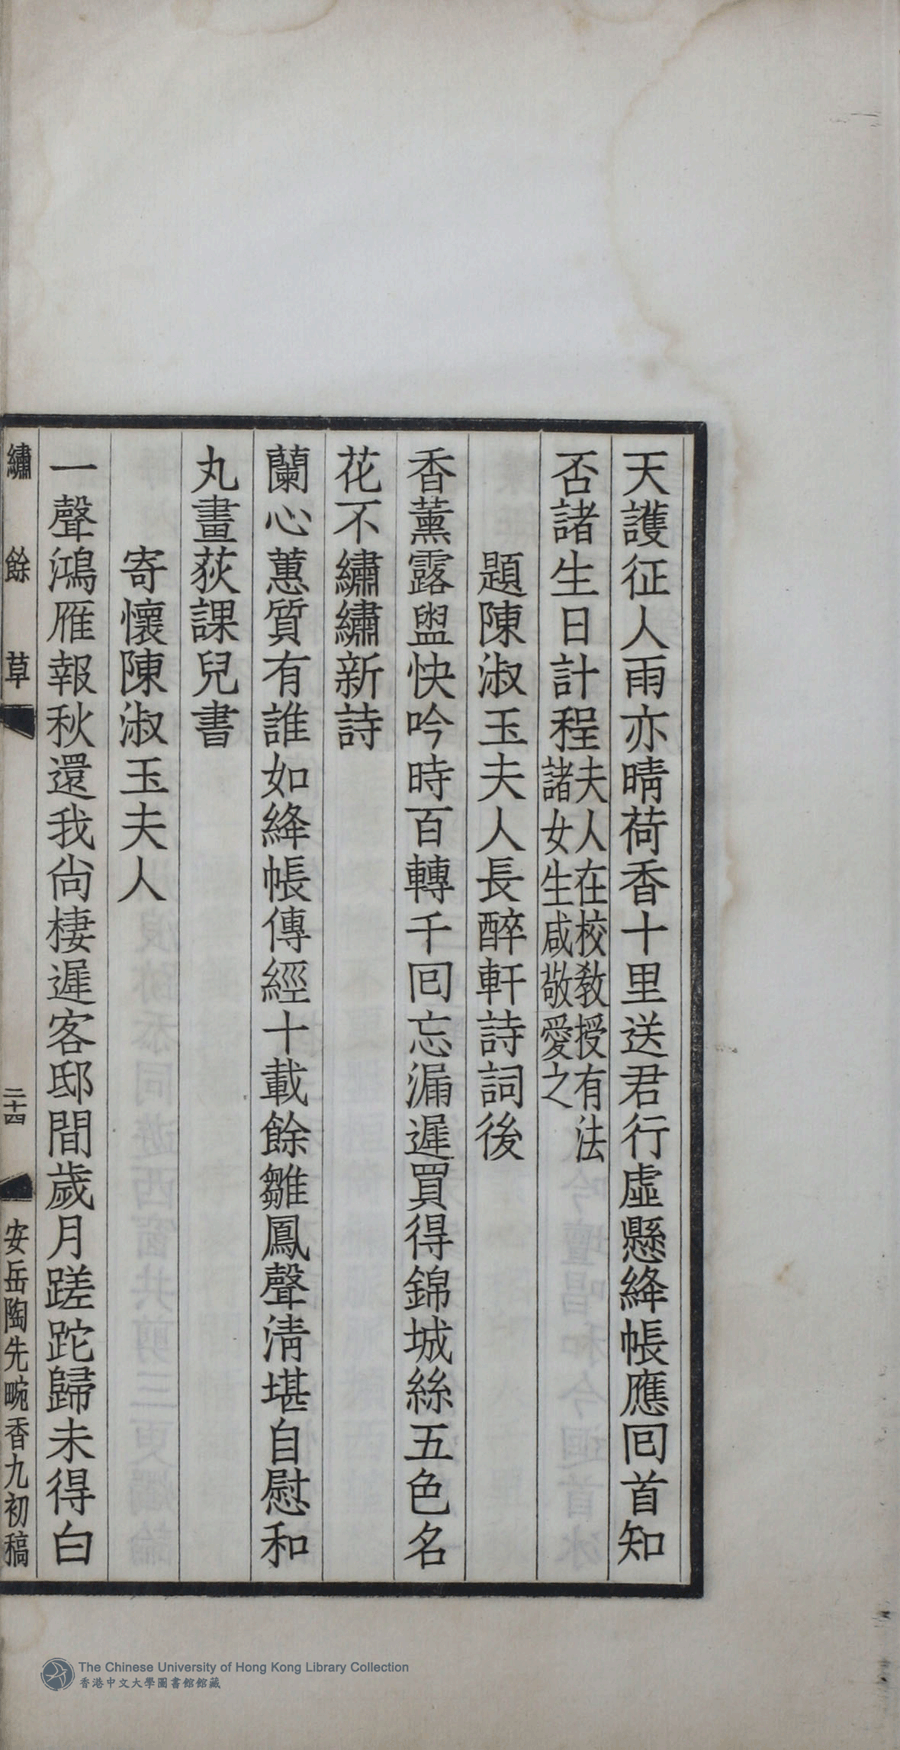 天護征人雨亦晴荷香十里送君行虛懸絳帳應囘首知
否諸生日計程夫人在校教授有法諸女生咸敬愛之
題陳淑玉夫人長醉軒詩詞後
香薰露盥快吟時百轉千囘忘漏遲買得錦城絲五色名
花不繡繡新詩
蘭心蕙質有誰如絳帳傳經十載餘雛鳳聲淸堪自慰和
丸畫荻課兒書
寄懷陳淑玉夫人
一聲鴻雁報秋還我尙棲遲客邸間歲月蹉跎歸未得白
繡餘草 二十四 安岳陶先畹香九初稿
The Chinese University of Hong Kong Library Collection
香港中文大學圖書館館藏